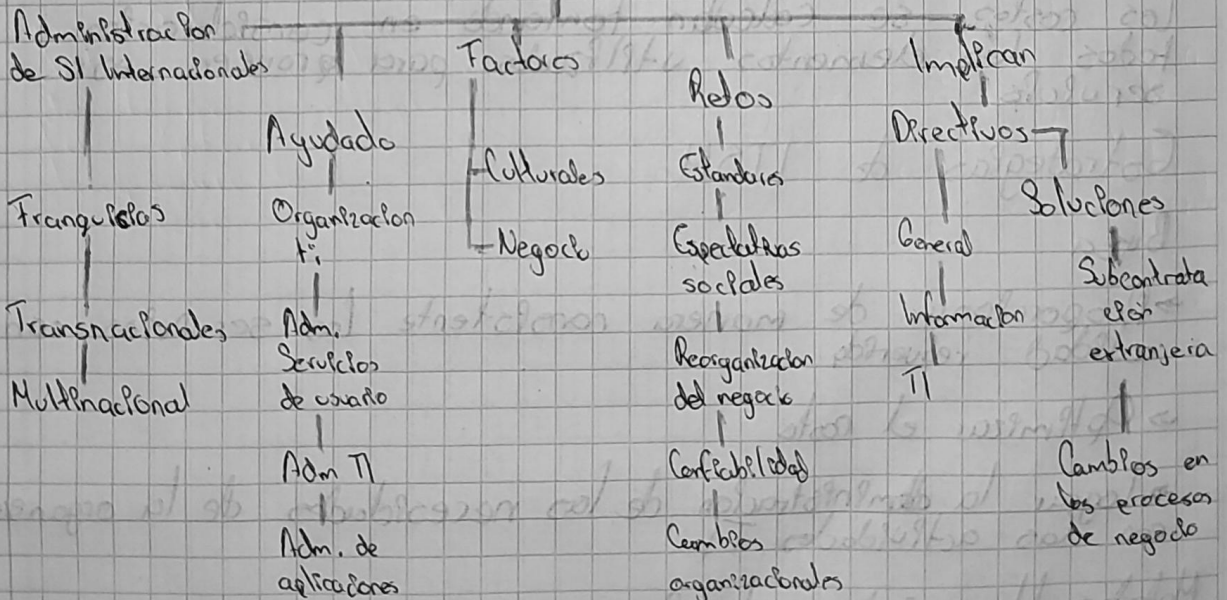 Administracion
de SI Internacionales
Franquicias
Transnacionales
Multinacional
Ayudado
Organizacion
ti
Adm.
Servicios
de usuario
Adm TI
Adm. de
aplicaciones
Factores
Culturales
Negocio
Retos
Estandares
Espectativas
sociales
Reorganizacion
del negocio
Confiabilidad
Cambios
organizacionales
Implican
Directivos
General
Informacion
TI
Soluciones
Subcontrata
ción
extranjera
Cambios en
los procesos
de negocio